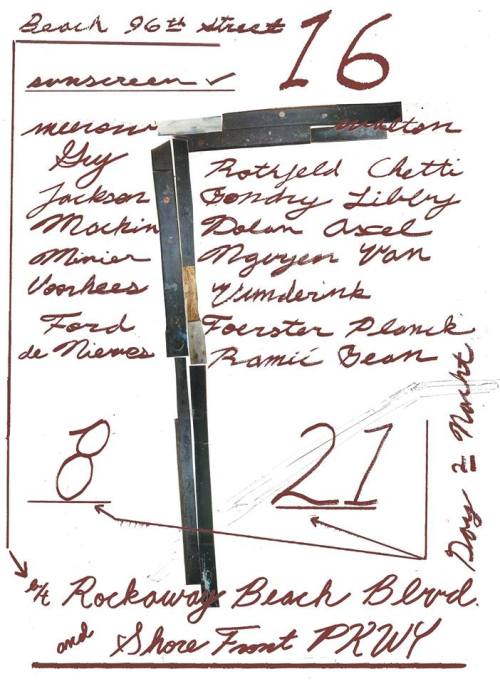 Beach 96th Street
16
sunscreen
Guy Rothfeld Chetti
Jackson Gondry Libby
Mackin Dolan Axel
Minier Nguyen Van
Voorhees Vunderink
Ford Foerster Planck
de Nieves Ramić Bean
8
21
Day 2 Nacht
b/t Rockaway Beach Blvd.
and Shore Front PKWY